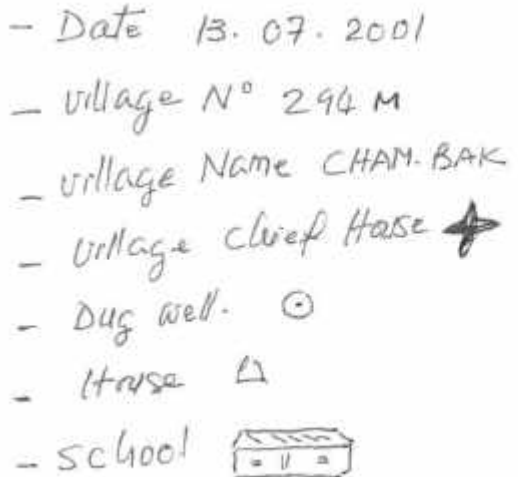 - Date 13.07.2001
- village N° 294 M
- village Name CHAM-BAK
- village chief House
- Dug well.
- House
- school